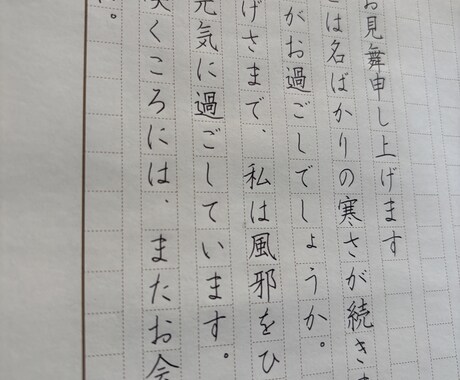 お見舞申し上げます
は名ばかりの寒さが続きま
がお過ごしでしょうか。
げさまで、私は風邪をひ
元気に過ごしています。
くころには、またお会
。